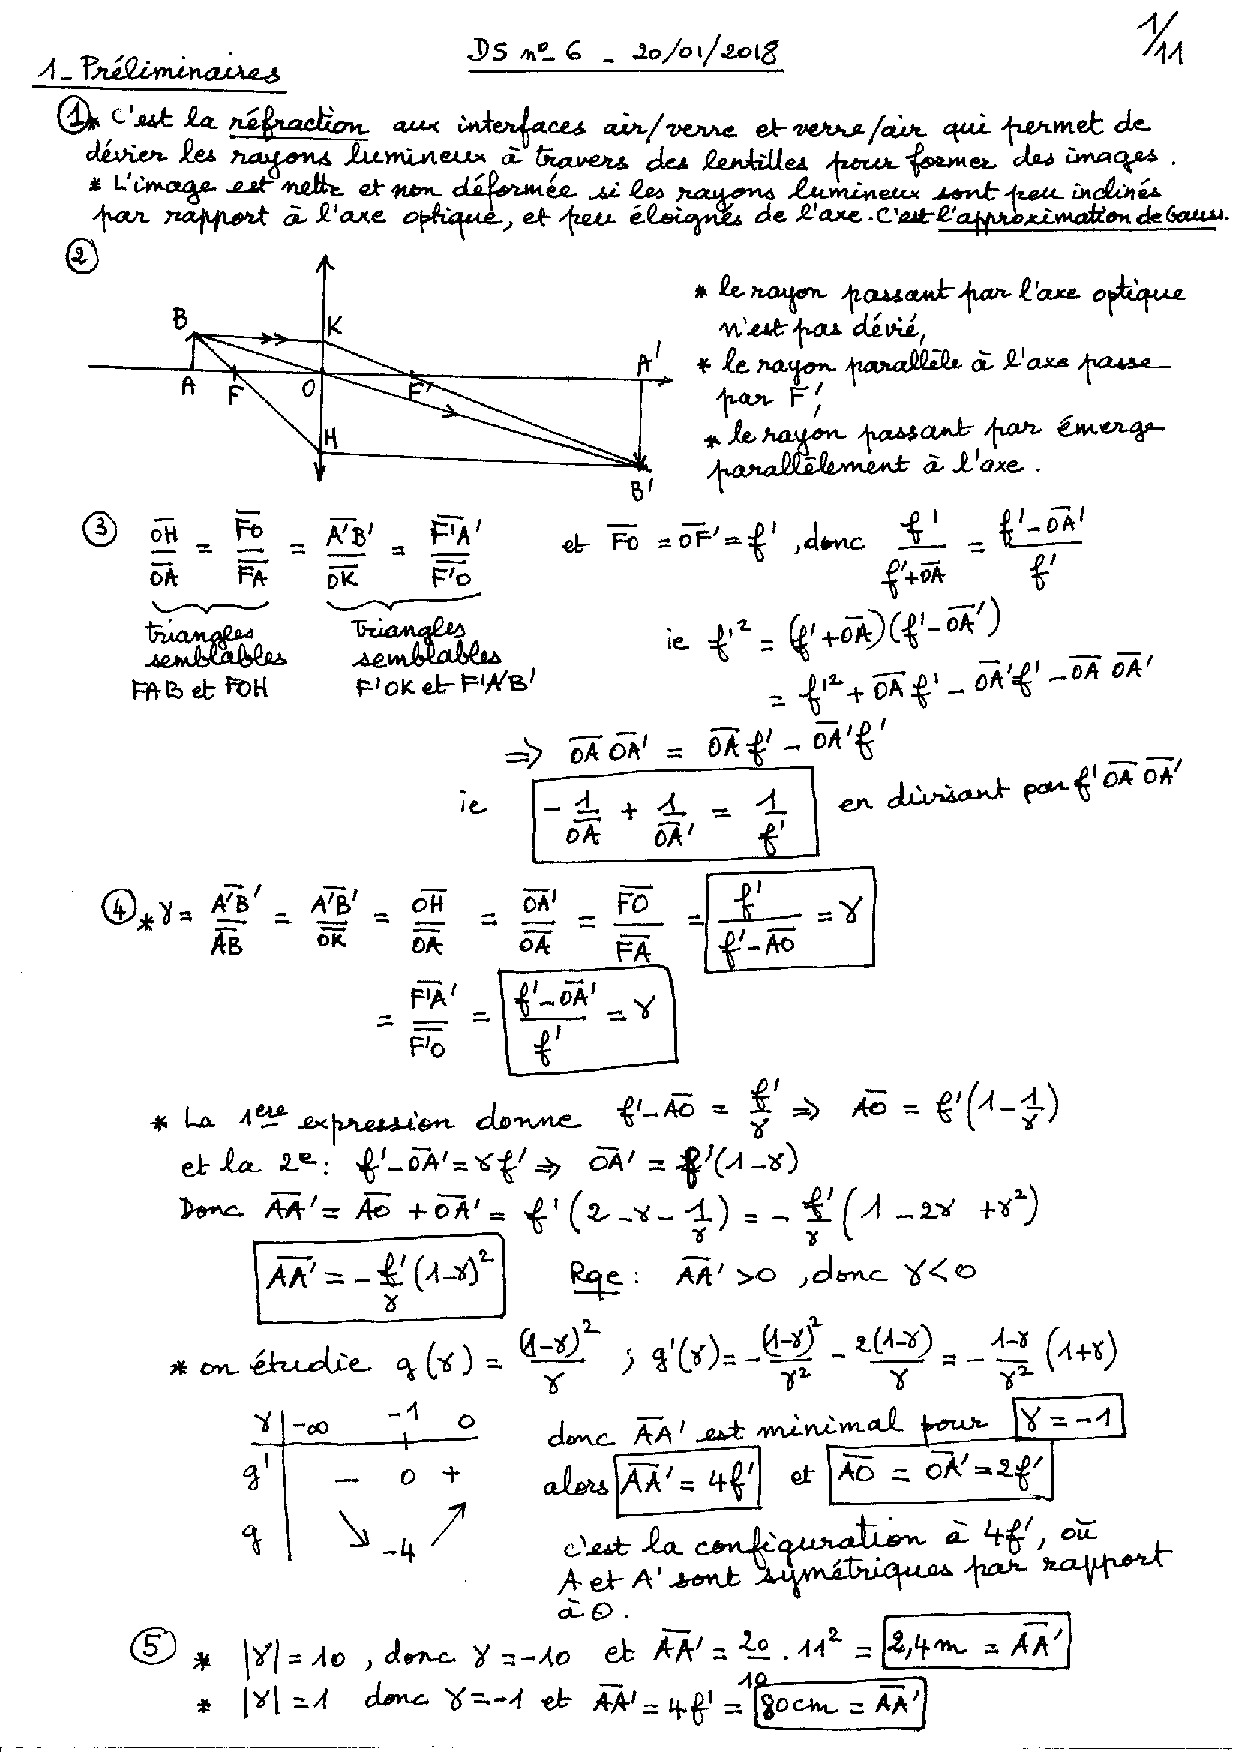 DS n° 6 - 20/01/2018
1/11
1_ Préliminaires
① * C'est la réfraction aux interfaces air/verre et verre/air qui permet de
dévier les rayons lumineux à travers des lentilles pour former des images.
* L'image est nette et non déformée si les rayons lumineux sont peu inclinés
par rapport à l'axe optique, et peu éloignés de l'axe. C'est l'approximation de Gauss.
②
B K A F O F' H A' B'
* le rayon passant par l'axe optique
n'est pas dévié,
* le rayon parallèle à l'axe passe
par F',
* le rayon passant par émerge
parallèlement à l'axe.
③ \frac{\overline{OH}}{\overline{OA}} = \frac{\overline{FO}}{\overline{FA}} = \frac{\overline{A'B'}}{\overline{OK}} = \frac{\overline{F'A'}}{\overline{F'O}} et \overline{FO} = \overline{OF'} = f', donc \frac{f'}{f'+\overline{OA}} = \frac{f'-\overline{OA'}}{f'}
triangles semblables FAB et FOH
Triangles semblables F'OK et F'A'B'
ie f'² = (f'+\overline{OA})(f'-\overline{OA'})
= f'² + \overline{OA} f' - \overline{OA'} f' - \overline{OA} \overline{OA'}
⇒ \overline{OA} \overline{OA'} = \overline{OA} f' - \overline{OA'} f'
ie -\frac{1}{\overline{OA}} + \frac{1}{\overline{OA'}} = \frac{1}{f'} en divisant par f' \overline{OA} \overline{OA'}
④ * γ = \frac{\overline{A'B'}}{\overline{AB}} = \frac{\overline{A'B'}}{\overline{OK}} = \frac{\overline{OH}}{\overline{OA}} = \frac{\overline{OA'}}{\overline{OA}} = \frac{\overline{FO}}{\overline{FA}} = \frac{f'}{f'-\overline{AO}} = γ
= \frac{\overline{F'A'}}{\overline{F'O}} = \frac{f'-\overline{OA'}}{f'} = γ
* La 1ère expression donne f'-\overline{AO} = \frac{f'}{γ} ⇒ \overline{AO} = f'(1-\frac{1}{γ})
et la 2e : f'-\overline{OA'} = γf' ⇒ \overline{OA'} = f'(1-γ)
Donc \overline{AA'} = \overline{AO} + \overline{OA'} = f'(2-γ-\frac{1}{γ}) = -\frac{f'}{γ}(1-2γ+γ²)
\overline{AA'} = -\frac{f'}{γ}(1-γ)² Rqe : \overline{AA'} > 0, donc γ < 0
* on étudie g(γ) = \frac{(1-γ)²}{γ} ; g'(γ) = -\frac{(1-γ)²}{γ²} - \frac{2(1-γ)}{γ} = -\frac{1-γ}{γ²}(1+γ)
γ | -∞ -1 0
g' | - 0 +
g | ↘ -4 ↗
donc \overline{AA'} est minimal pour γ = -1
alors \overline{AA'} = 4f' et \overline{AO} = \overline{OA'} = 2f'
c'est la configuration à 4f', où
A et A' sont symétriques par rapport
à O.
⑤ * |γ| = 10, donc γ = -10 et \overline{AA'} = \frac{20}{10} . 11² = 2,4 m = \overline{AA'}
* |γ| = 1 donc γ = -1 et \overline{AA'} = 4f' = 80cm = \overline{AA'}